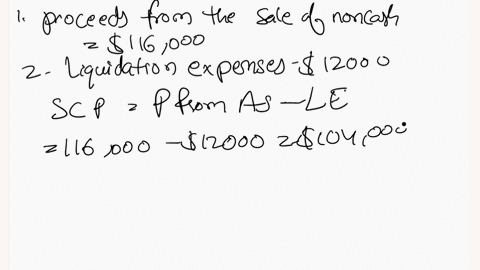 1. proceeds from the sale of noncash
= $116,000
2 - Liquidation expenses - $12000
SCP = P from As - LE
= 116,000 - $12000 = $104,000